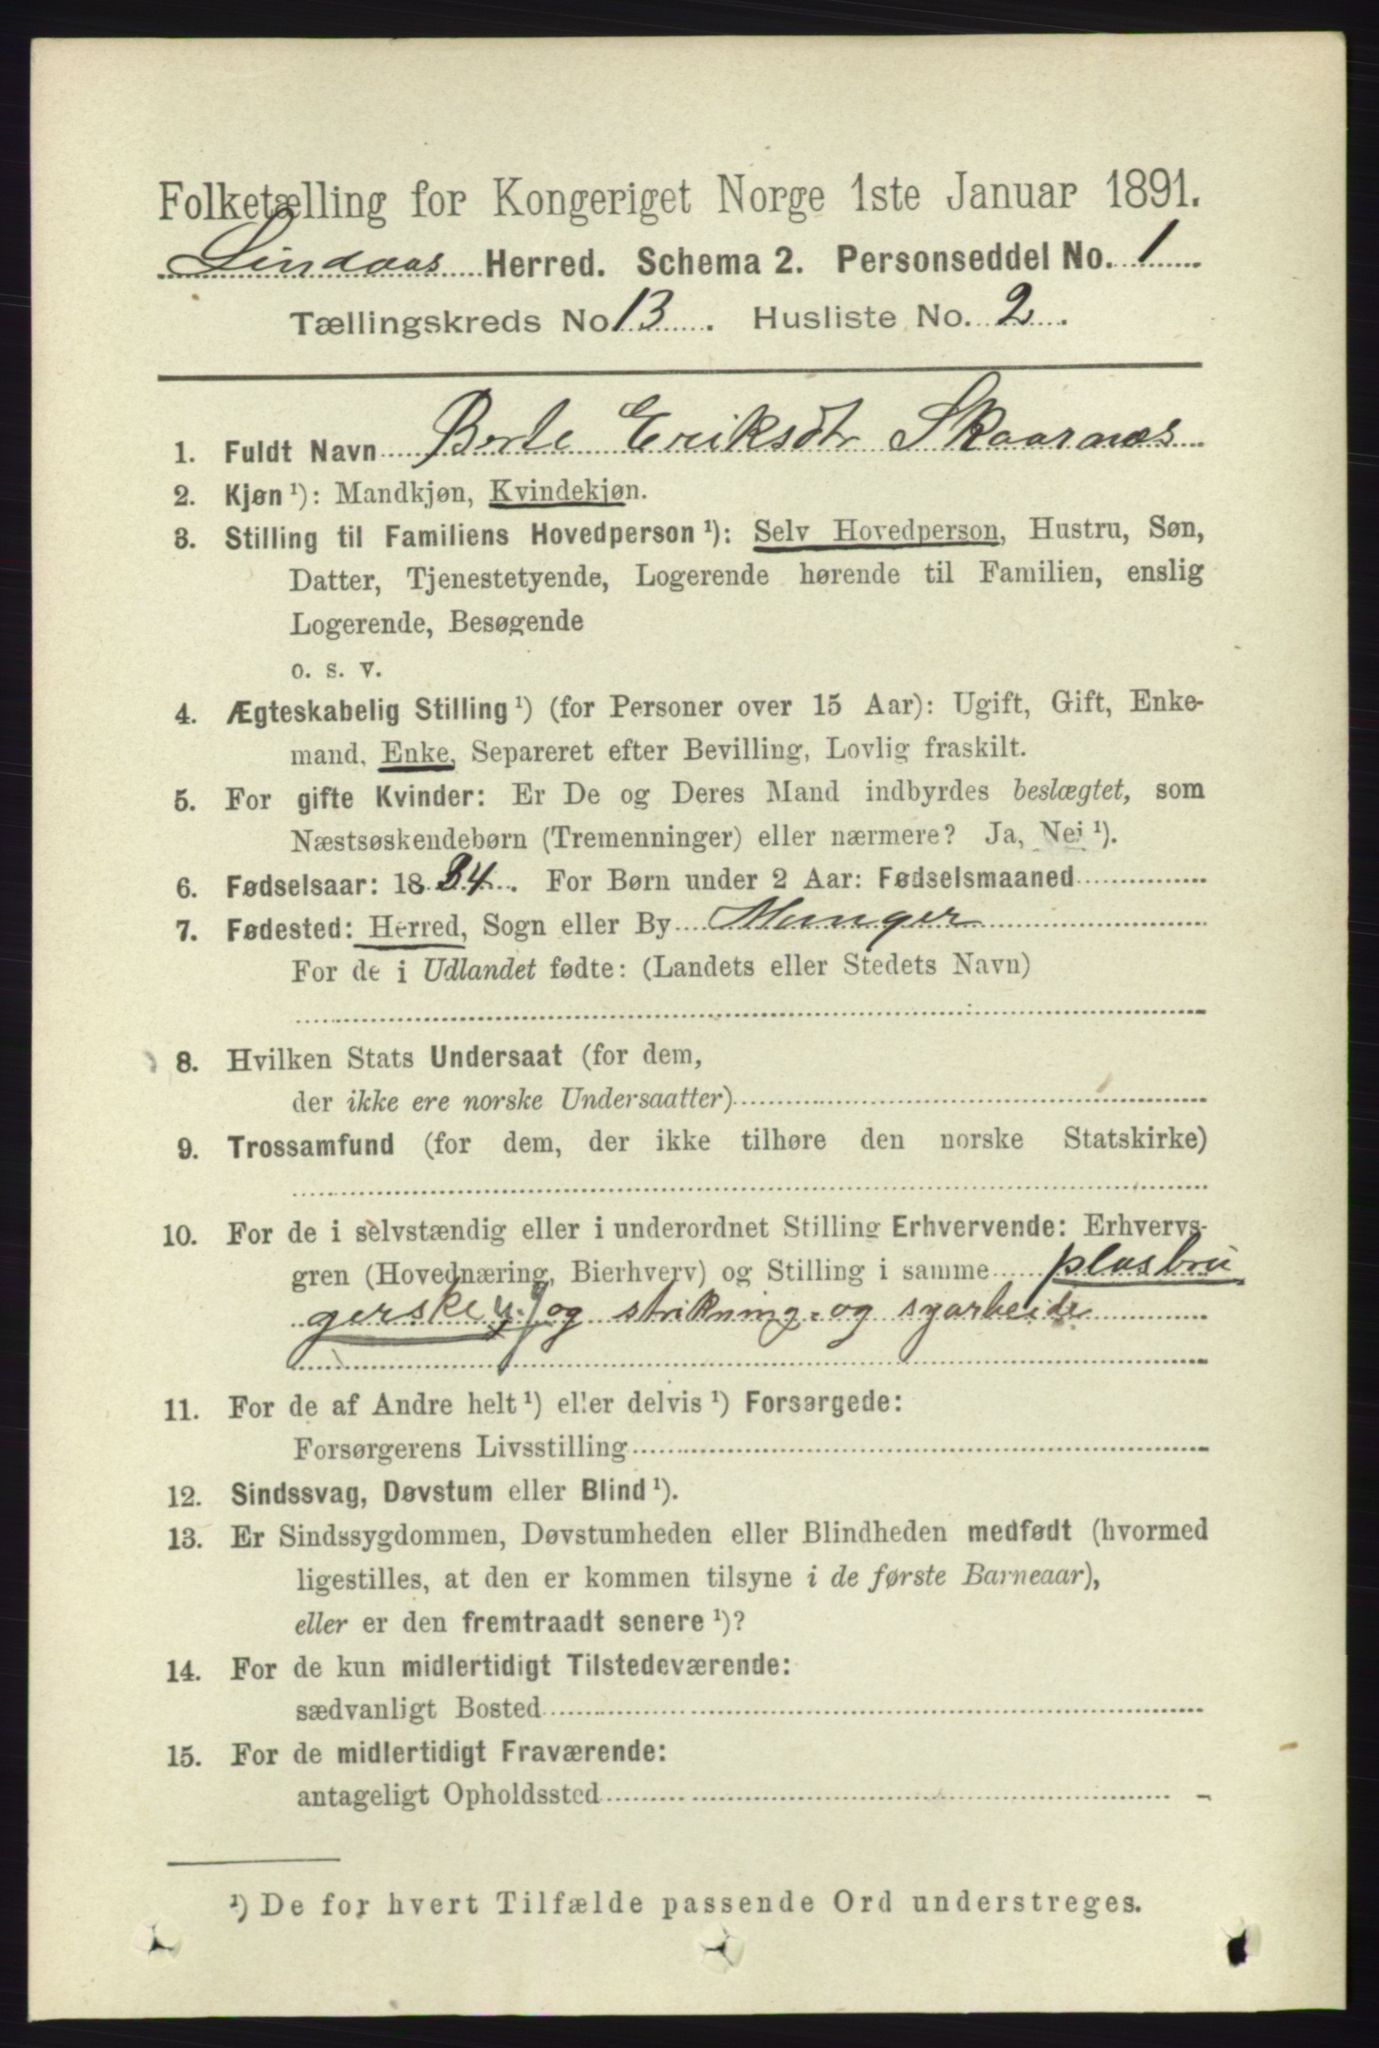 Folketælling for Kongeriget Norge 1ste Januar 1891.
Lindaas Herred. Schema 2. Personseddel No. 1
Tællingskreds No 13. Husliste No. 2.
1. Fuldt Navn Berte Eriksdtr Skaarnæs
2. Kjøn ¹): Mandkjøn, Kvindekjøn.
3. Stilling til Familiens Hovedperson ¹): Selv Hovedperson, Hustru, Søn,
Datter, Tjenestetyende, Logerende hørende til Familien, enslig
Logerende, Besøgende
o. s. v.
4. Ægteskabelig Stilling ¹) (for Personer over 15 Aar): Ugift, Gift, Enke-
mand, Enke, Separeret efter Bevilling, Lovlig fraskilt.
5. For gifte Kvinder: Er De og Deres Mand indbyrdes beslægtet, som
Næstsøskendebørn (Tremenninger) eller nærmere? Ja, Nei ¹).
6. Fødselsaar: 1834. For Børn under 2 Aar: Fødselsmaaned
7. Fødested: Herred, Sogn eller By Manger
For de i Udlandet fødte: (Landets eller Stedets Navn)
8. Hvilken Stats Undersaat (for dem,
der ikke ere norske Undersaatter)
9. Trossamfund (for dem, der ikke tilhøre den norske Statskirke)
10. For de i selvstændig eller i underordnet Stilling Erhvervende: Erhvervs-
gren (Hovednæring, Bierhverv) og Stilling i samme plasbru
gerske og strikning- og syarbeide
11. For de af Andre helt ¹) eller delvis ¹) Forsørgede:
Forsørgerens Livsstilling
12. Sindssvag, Døvstum eller Blind ¹).
13. Er Sindssygdommen, Døvstumheden eller Blindheden medfødt (hvormed
ligestilles, at den er kommen tilsyne i de første Barneaar),
eller er den fremtraadt senere ¹)?
14. For de kun midlertidigt Tilstedeværende:
sædvanligt Bosted
15. For de midlertidigt Fraværende:
antageligt Opholdssted
¹) De for hvert Tilfælde passende Ord understreges.